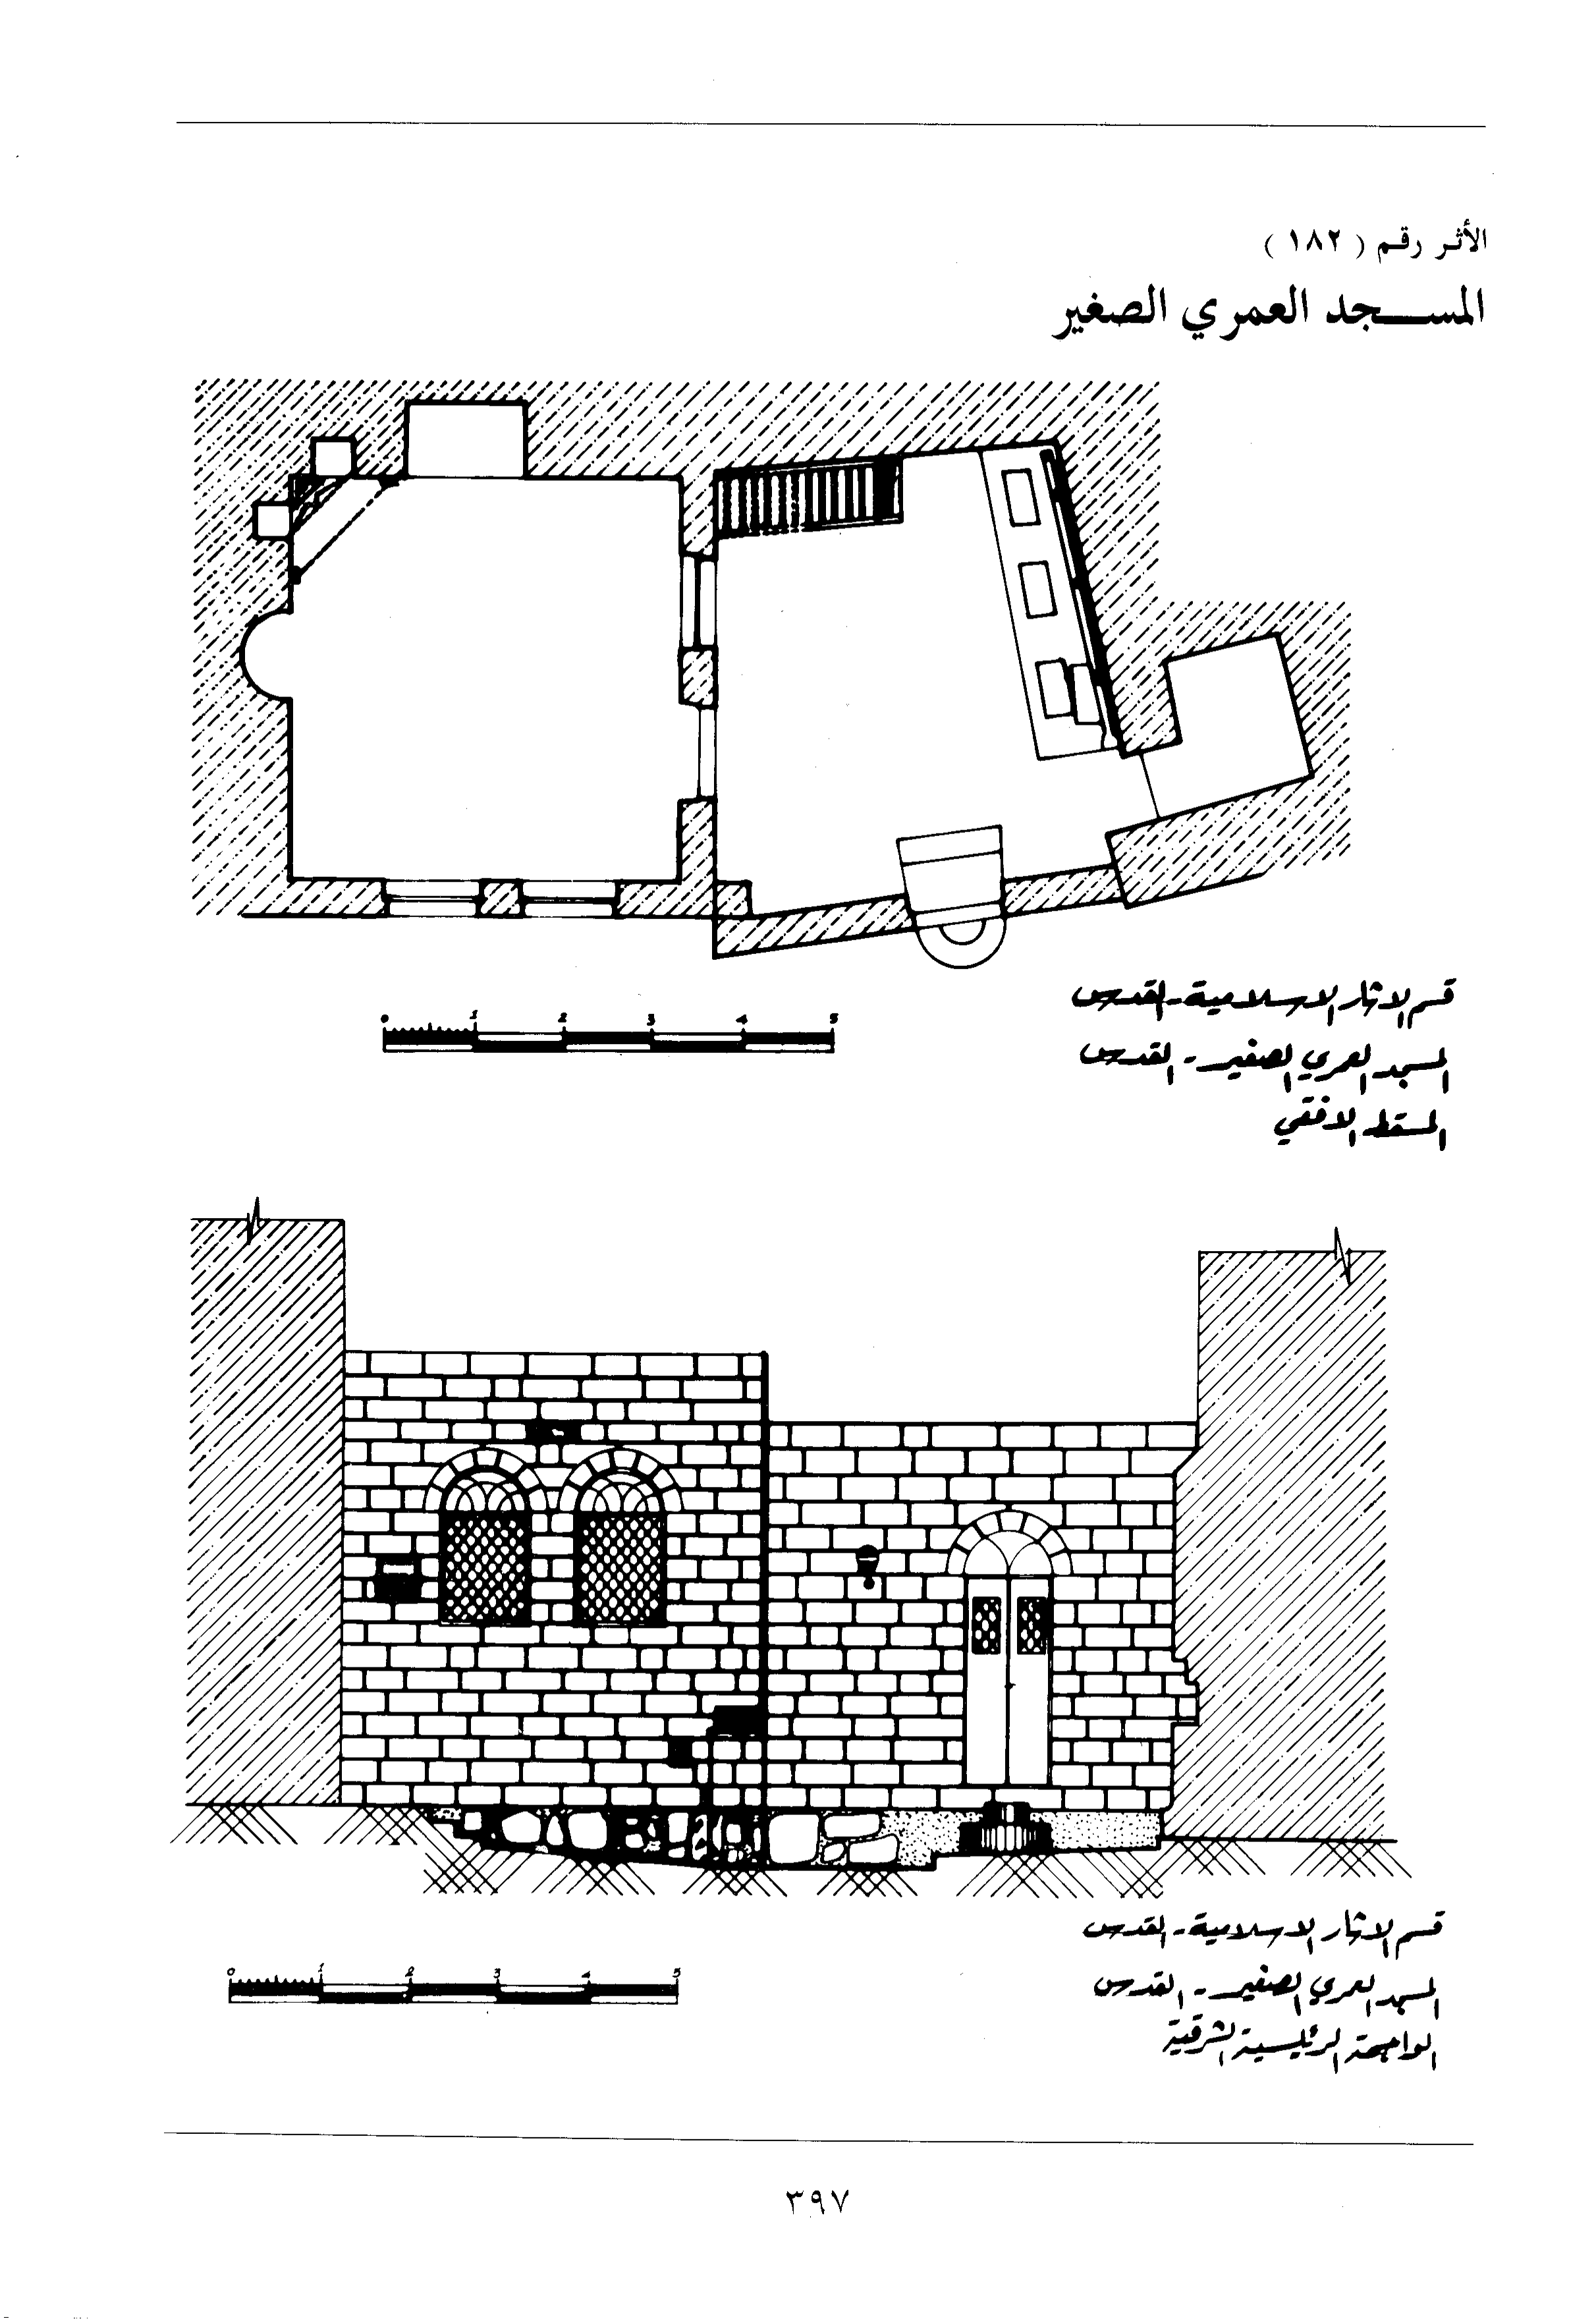 الأثر رقم ( ١٨٢ )
المســـجد العمري الصغير
قسم الاثار الاسلامية - القدس
المسجد العمري الصغير - القدس
المسقط الافقي
0 1 2 3 4 5
قسم الاثار الاسلامية - القدس
المسجد العمري الصغير - القدس
الواجهة الرئيسية الشرقية
0 1 2 3 4 5
٣٩٧